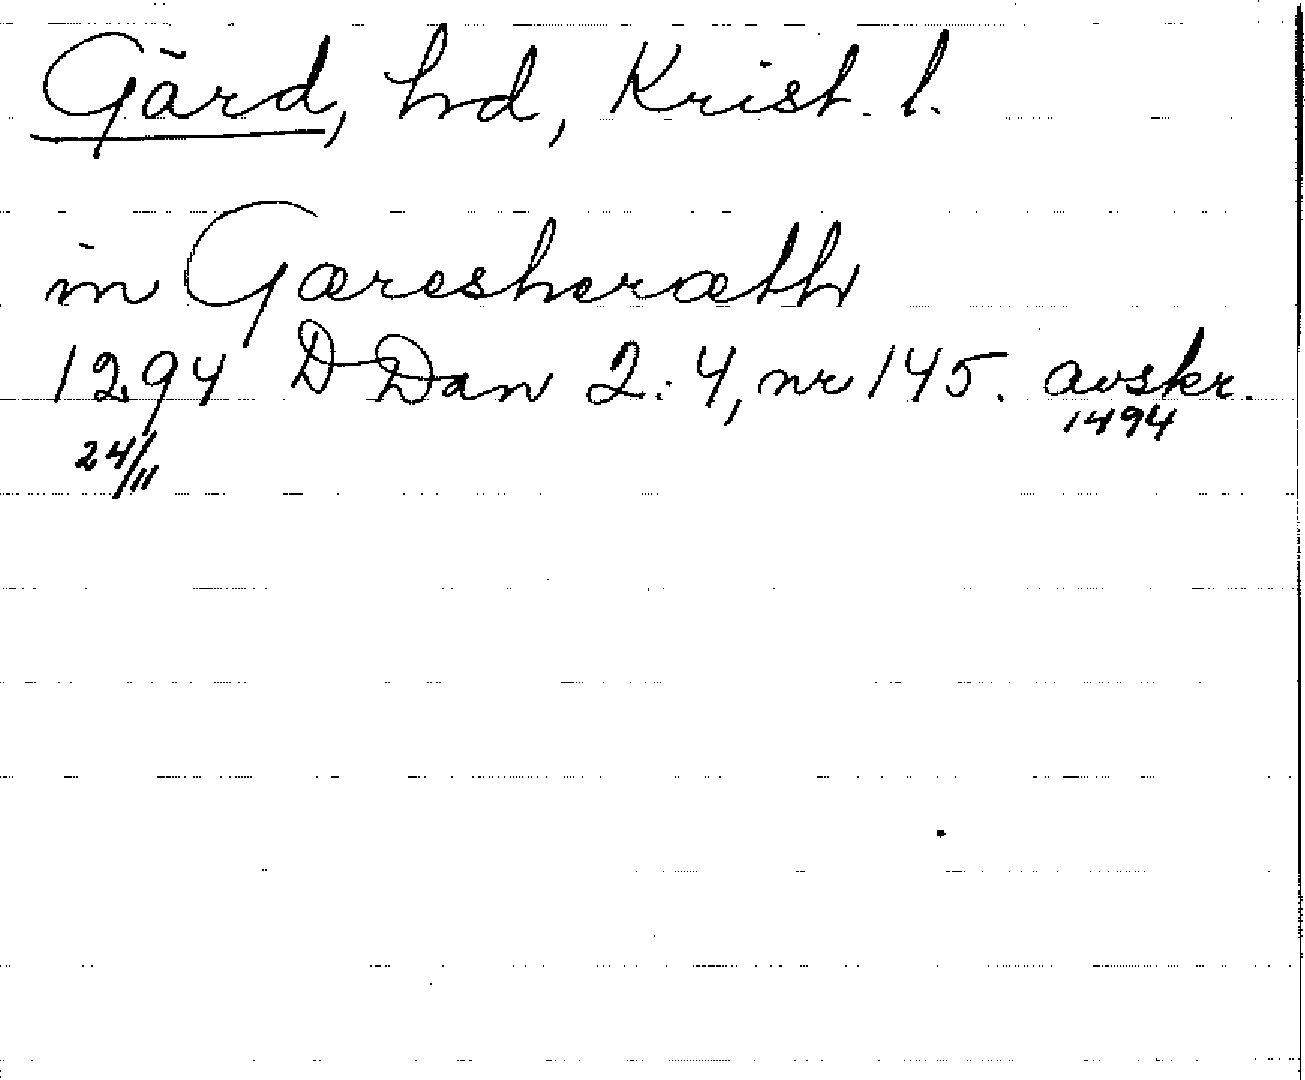 Gärd, hd, Krist. l.
in Gæresheræth
1294 D Dan 2:4, nr 145. avskr.
24/11 1494